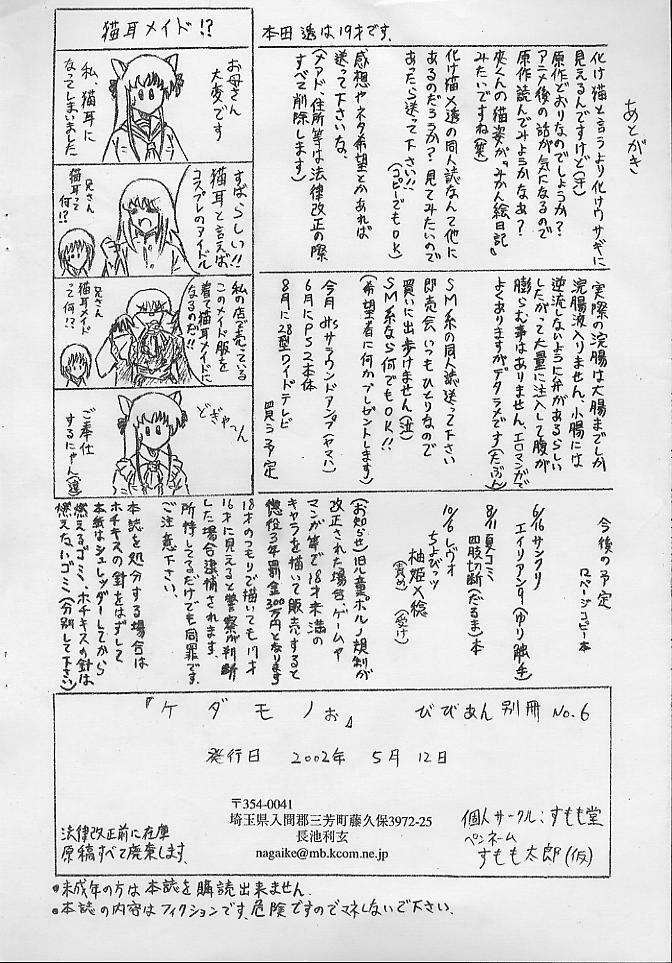 あとがき
化け猫と言うより化けウサギに
見えるんですけど(汗)
原作どおりなのでしょうか?
アニメ後の話が気になるので
原作読んでみようかなあ?
夾くんの猫姿が『みかん絵日記』
みたいですね(笑)
化け猫×透の同人誌なんて他に
あるのだろうか?見てみたいので
あったら送って下さい!!
(コピーでもOK)
感想やネタ希望とかあれば
送って下さいな、
(メアド、住所等は法律改正の際
すべて削除します)
本田 透は19才です。
猫耳メイド!?
お母さん
大変です
私、猫耳に
なってしまいました
すばらしい!!
猫耳と言えば
コスプレのアイドル
兄さん
猫耳って
何!?
私の店で売っている
このメイド服を
着て猫耳メイドに
なるのだ!!
兄さん
猫耳メイド
って何!?
どぎゃーん
ご奉仕
するにゃん(透)
実際の浣腸は大腸までしか
浣腸液入りません、小腸には
逆流しないように弁があるらしい
したがって大量に注入して腹が
膨らむ事はありません、エロマンガで
よくありますがデタラメです(たぶん)
SM系の同人誌送って下さい
即売会いつもひとりなので
買いに出歩けません(泣)
SM系なら何でもOK!!
(希望者に何かプレゼントします)
今月 サラウンドアンプ(ヤマハ)
6月にPS2本体
8月に28型ワイドテレビ
買う予定
今後の予定
ロページコピー本
6/16 サンクリ
エイリアン9(ゆり触手)
8/11 夏コミ
四肢切断(だるま)本
10/6 レヴォ
ちょびっツ
柚姫×稔
(責め) (受け)
(お知らせ)旧児童ポルノ規制が
改正された場合、ゲームや
マンガ等で18才未満の
キャラを描いて販売すると
懲役3年罰金300万円となります
18才のつもりで描いても17才
16才に見えると警察が判断
した場合逮捕されます、
所持してるだけでも同罪です、
ご注意下さい、
本誌を処分する場合は
ホチキスの針をはずして
本紙はシュレッダーしてから
燃えるゴミ、ホチキスの針は
燃えないゴミ(分別して下さい)
『ケダモノぉ』 びびあん別冊 No.6
発行日 2002年 5月12日
〒354-0041
埼玉県入間郡三芳町藤久保3972-25
長池利玄
nagaike@mb.kcom.ne.jp
個人サークル:すもも堂
ペンネーム
すもも太郎(仮)
法律改正前に在庫
原稿すべて廃棄します、
●未成年の方は本誌を購読出来ません.
●本誌の内容はフィクションです、危険ですのでマネしないで下さい.